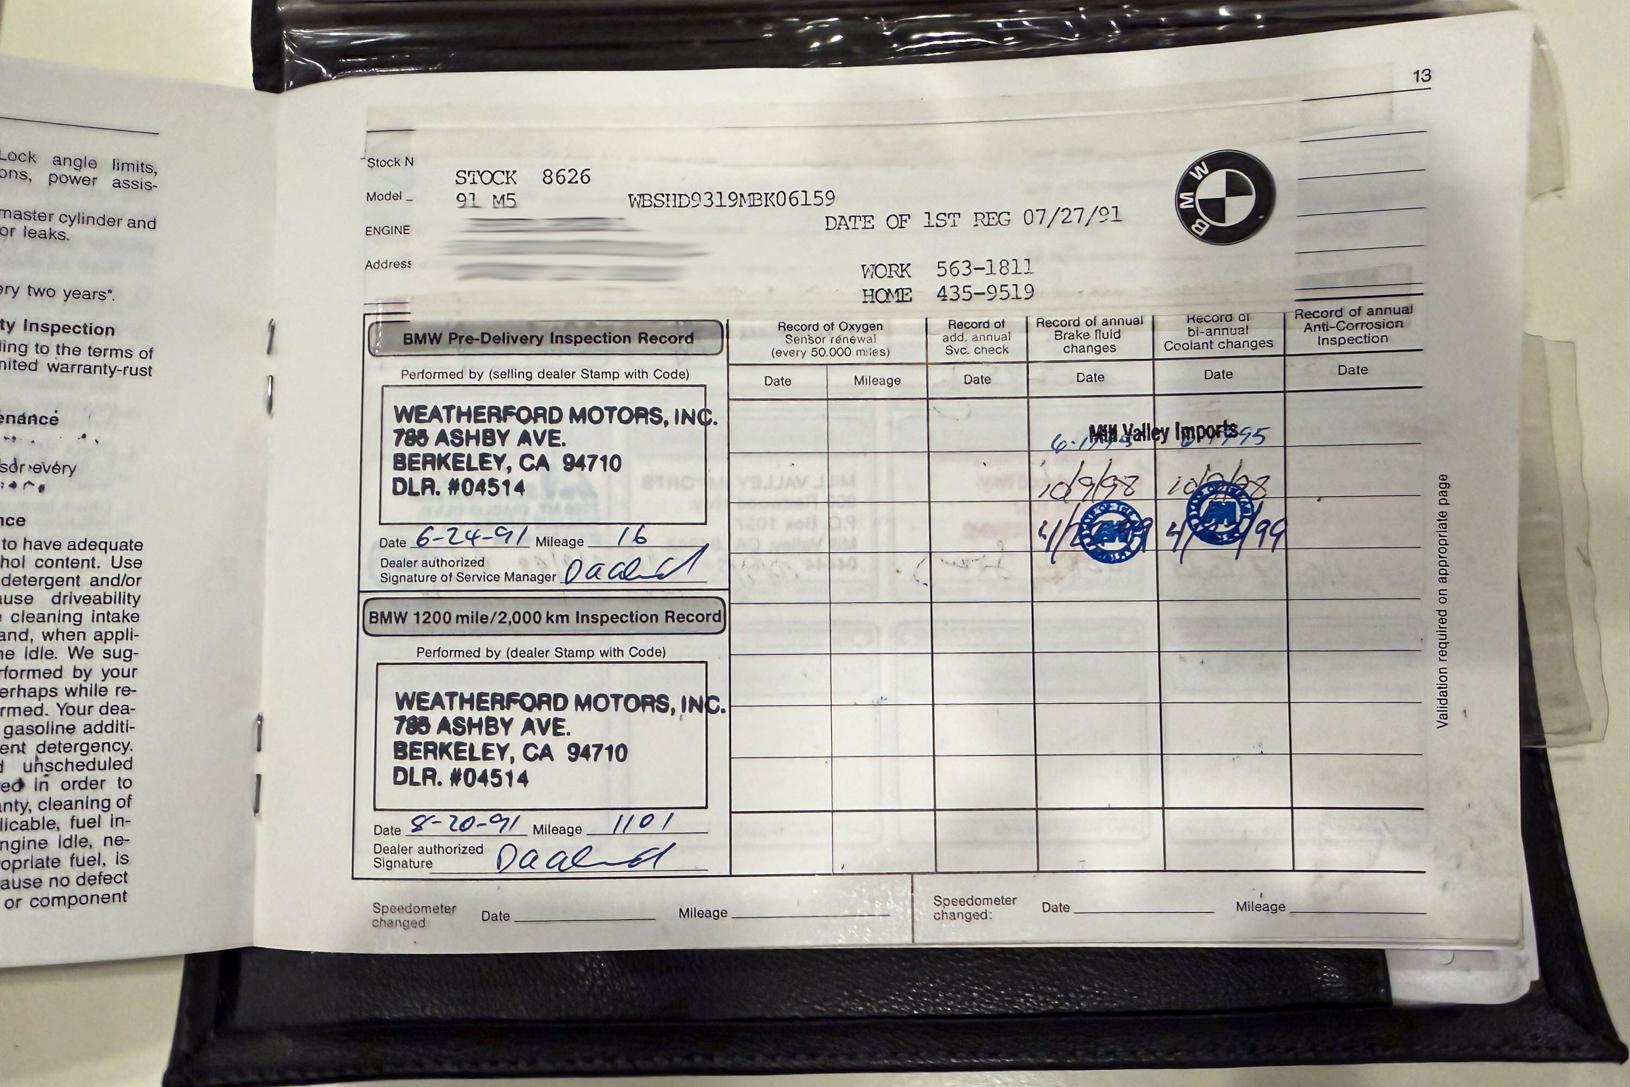 Lock angle limits,
ons, power assis-
master cylinder and
or leaks.
ery two years".
ty Inspection
ling to the terms of
nited warranty-rust
enance
sor every
nce
to have adequate
hol content. Use
detergent and/or
ause driveability
cleaning intake
and, when appli-
ne idle. We sug-
rformed by your
erhaps while re-
rmed. Your dea-
gasoline additi-
ent detergency.
d unscheduled
ed in order to
anty, cleaning of
licable, fuel in-
ngine idle, ne-
opriate fuel, is
ause no defect
or component
13
Stock N
Model
ENGINE
Address
STOCK 8626
91 M5 WBSHD9319MBK06159
DATE OF 1ST REG 07/27/91
WORK 563-1811
HOME 435-9519
BMW
BMW Pre-Delivery Inspection Record
Performed by (selling dealer Stamp with Code)
WEATHERFORD MOTORS, INC.
785 ASHBY AVE.
BERKELEY, CA 94710
DLR. #04514
Date 6-24-91 Mileage 16
Dealer authorized
Signature of Service Manager
BMW 1200 mile/2,000 km Inspection Record
Performed by (dealer Stamp with Code)
WEATHERFORD MOTORS, INC.
785 ASHBY AVE.
BERKELEY, CA 94710
DLR. #04514
Date 8-20-91 Mileage 1101
Dealer authorized
Signature
Record of Oxygen
Sensor renewal
(every 50.000 miles)
Date Mileage
Record of
add. annual
Svc. check
Date
Record of annual
Brake fluid
changes
Date
Record of
bi-annual
Coolant changes
Date
Record of annual
Anti-Corrosion
Inspection
Date
Mill Valley Imports
10/9/98 10/9/98
Validation required on appropriate page
Speedometer
changed: Date Mileage
Speedometer
changed: Date Mileage